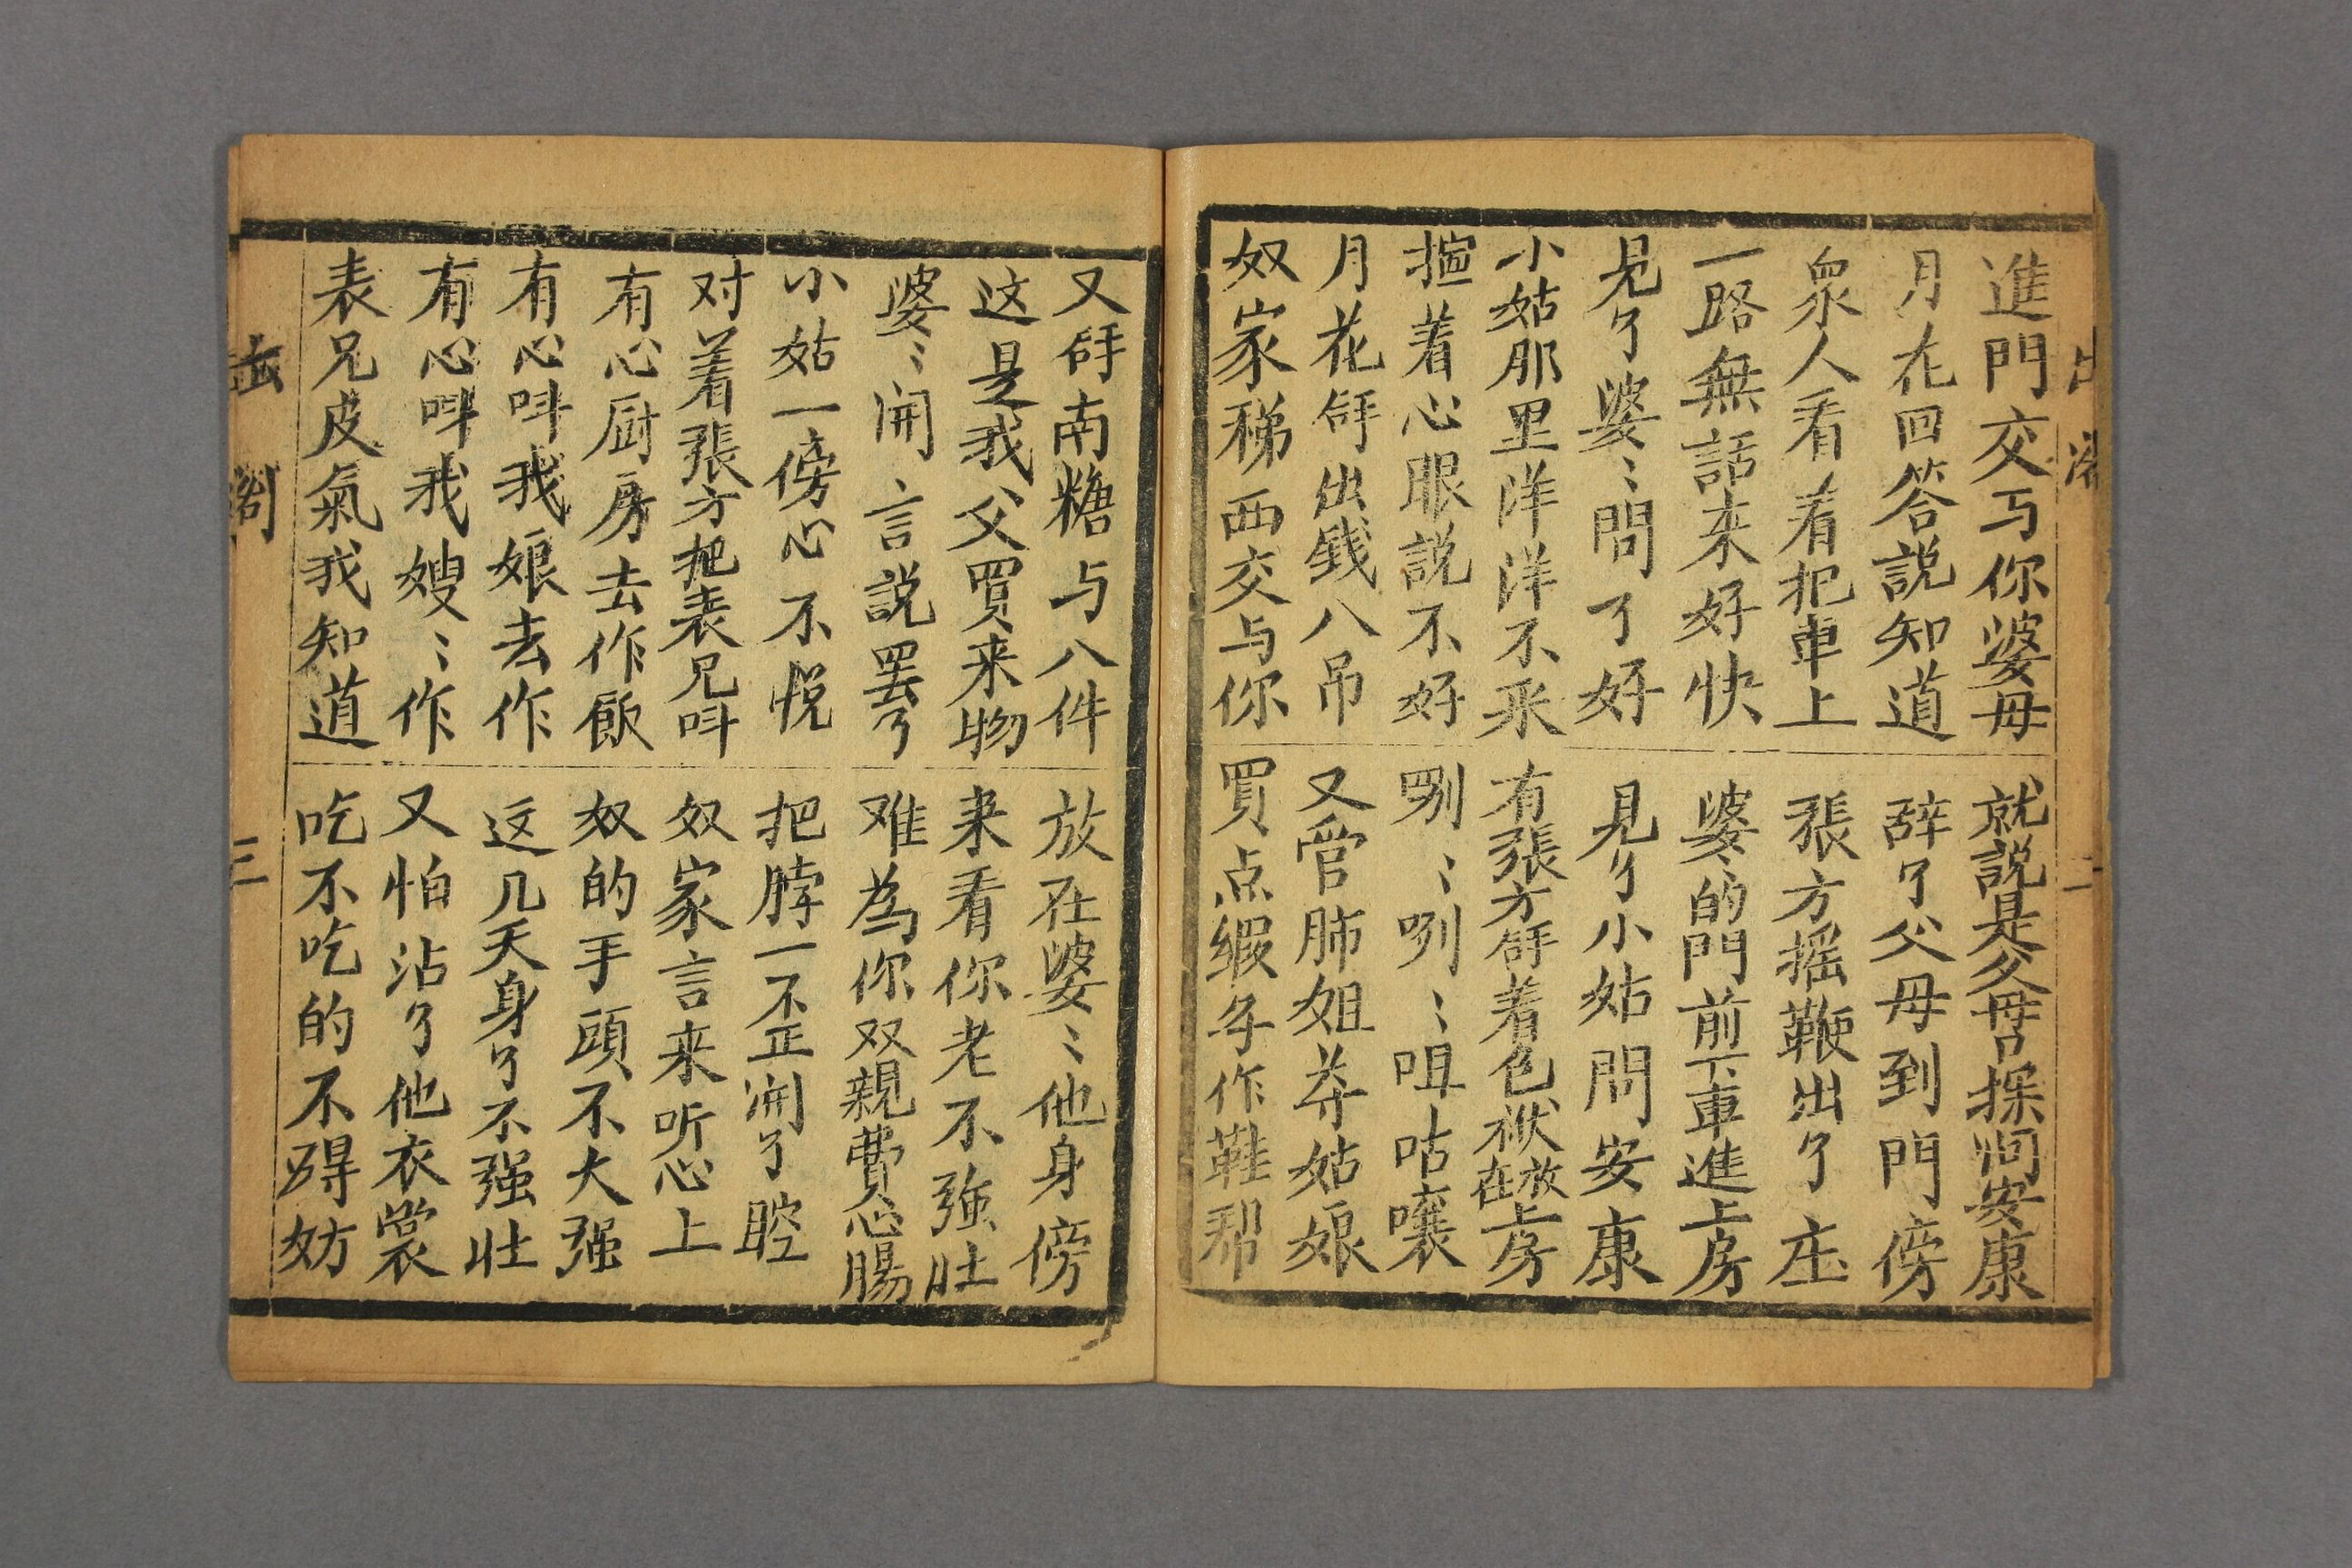 進門交与你婆母
就説是父母探问安康
月花回答説知道
辞了父母到門傍
衆人看着把車上
張方摇鞭出了庄
一路無話来好快
婆〻的門前下車進上房
見了婆〻問了好
見了小姑問安康
小姑那里洋洋不采
有張方舒着包袱放在上房
揎着心眼説不好
咧〻咧〻咀咕嚷
月花舒出銭八吊
又管肺姐莽姑娘
奴家稀西交与你
買点缎子作鞋帮
出
二
又舒南糖与八件
放在婆〻他身傍
这是我父買来物
来看你老不强壮
婆〻開言説罢了
难為你双親費心腸
小姑一傍心不悦
把脖一歪開了腔
对着張方把表兄叫
奴家言来听心上
有心厨房去作飯
奴的手頭不大强
有心叫我娘去作
这几天身了不强壮
有心叫我嫂〻作
又怕沾了他衣裳
表兄皮氣我知道
吃不吃的不碍妨
出閣
三